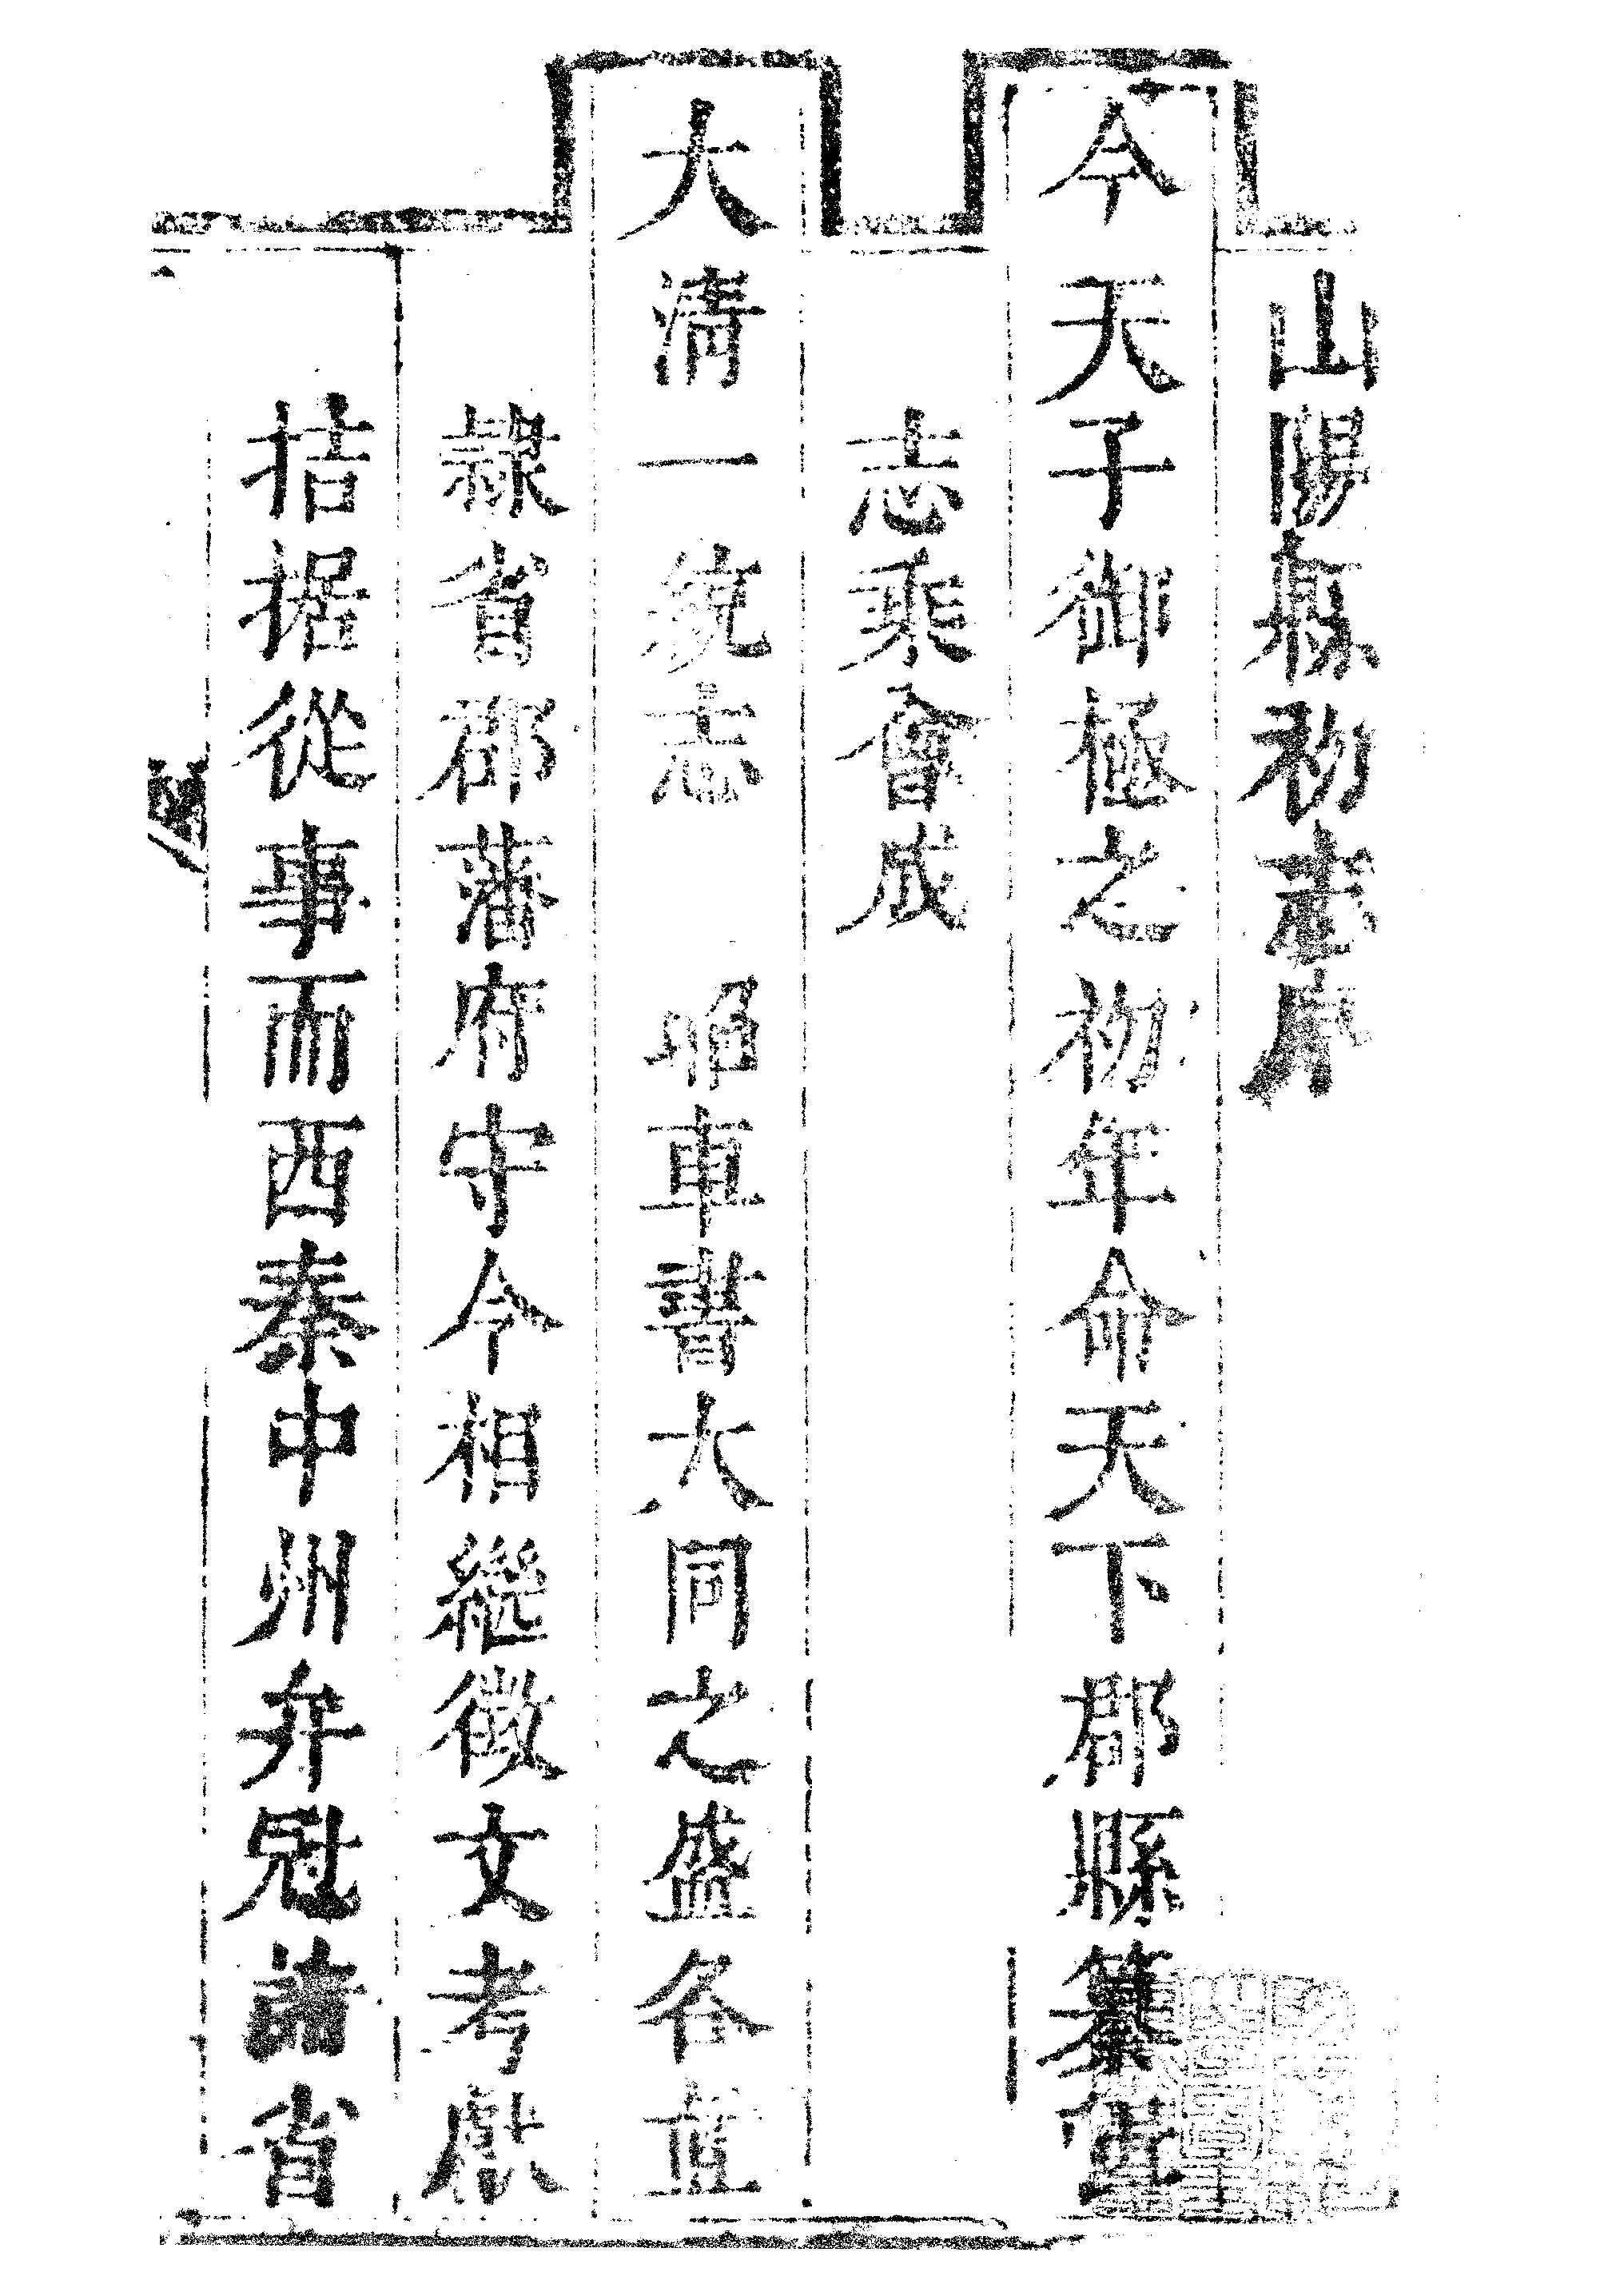 山陽縣初志序
今天子御極之初年命天下郡縣纂修
志乘會成
大清一統志 昭車書大同之盛各直
隸省郡藩府守令相繼徵文考獻
拮据從事而西秦中州弁冠諸省